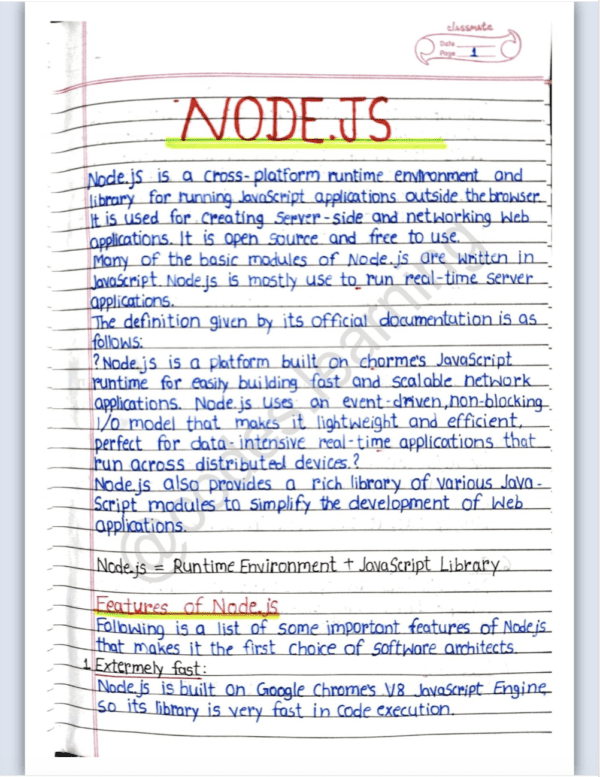 classmate
Date
Page 1
NODE.JS
Node.js is a cross-platform runtime environment and
library for running JavaScript applications outside the browser.
It is used for creating server-side and networking web
applications. It is open source and free to use.
Many of the basic modules of Node.js are written in
JavaScript. Node.js is mostly use to run real-time server
applications.
The definition given by its official documentation is as
follows:
?Node.js is a platform built on chorme's JavaScript
runtime for easily building fast and scalable network
applications. Node.js uses an event-driven, non-blocking
I/O model that makes it lightweight and efficient,
perfect for data-intensive real-time applications that
run across distributed devices.?
Node.js also provides a rich library of various Java-
Script modules to simplify the development of web
applications.
Node.js = Runtime Environment + JavaScript Library
Features of Node.js
Following is a list of some important features of Node.js
that makes it the first choice of software architects.
1. Extermely fast:
Node.js is built on Google Chrome's V8 JavaScript Engine
so its library is very fast in code execution.
@codes.learning